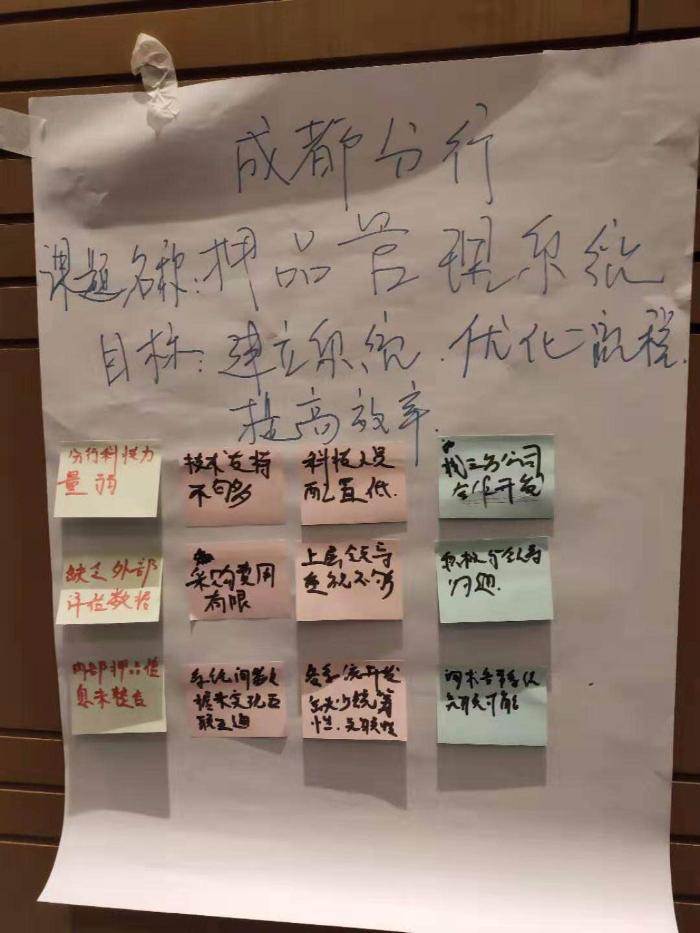 成都分行
课题名称:押品管理系统
目标:建立系统.优化流程.
提高效率.
分行科技力
量弱
技术支持
不够
科技人员
配置低.
找三方公司
合作开发
缺乏外部
评估数据
采购费用
有限
上层领导
重视不够
积极
问题.
内部押品信
息未整合
系统间数
据未实现互
联互通
各系统开发
缺少统筹
性.无关联性